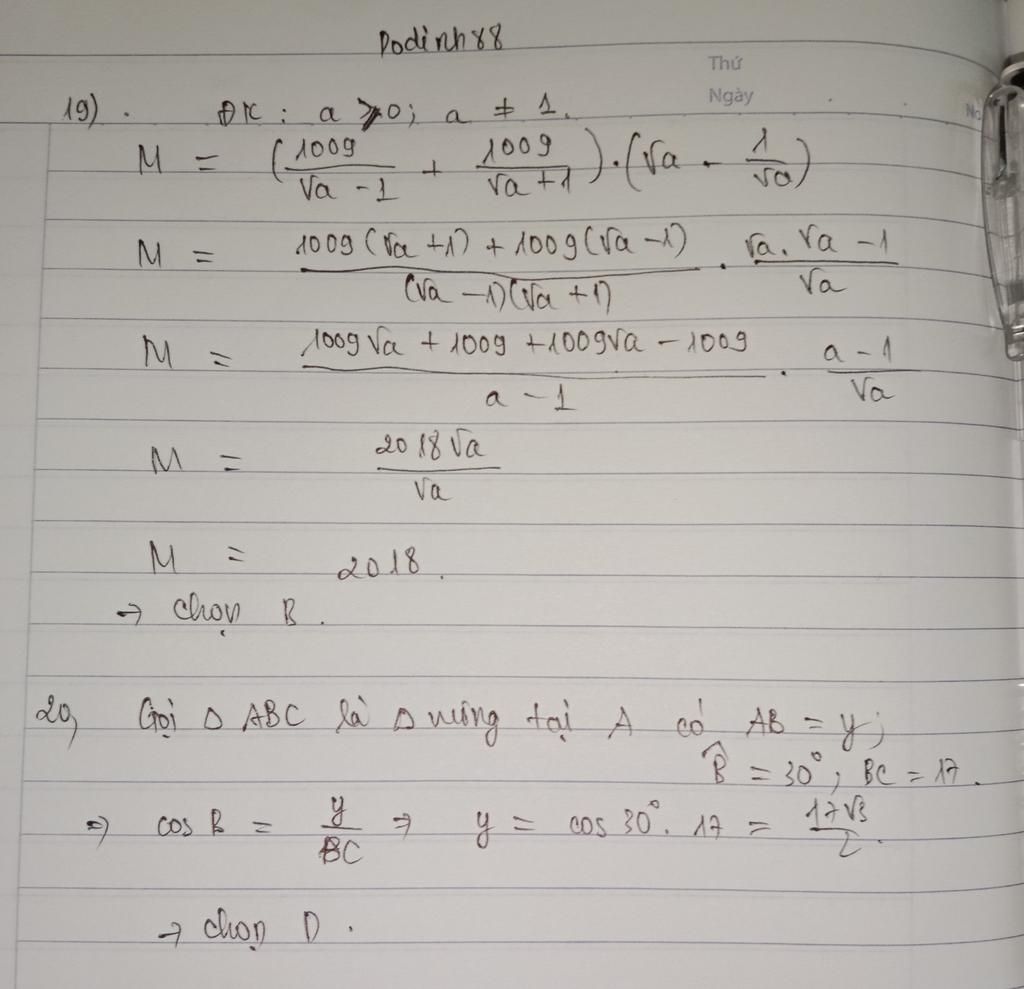 Dodinh88
Thứ
Ngày
No
19). ĐK : a > 0; a ≠ 1.
M = (1009/(√a - 1) + 1009/(√a + 1)) . (√a - 1/√a)
M = (1009(√a + 1) + 1009(√a - 1))/((√a - 1)(√a + 1)) . (√a . √a - 1)/√a
M = (1009√a + 1009 + 1009√a - 1009)/(a - 1) . (a - 1)/√a
M = 2018√a/√a
M = 2018.
→ chọn B.
20, Gọi Δ ABC là Δ vuông tại A có AB = y;
B̂ = 30°, BC = 17.
⇒ cos B = y/BC ⇒ y = cos 30° . 17 = 17√3/2.
→ chọn D.